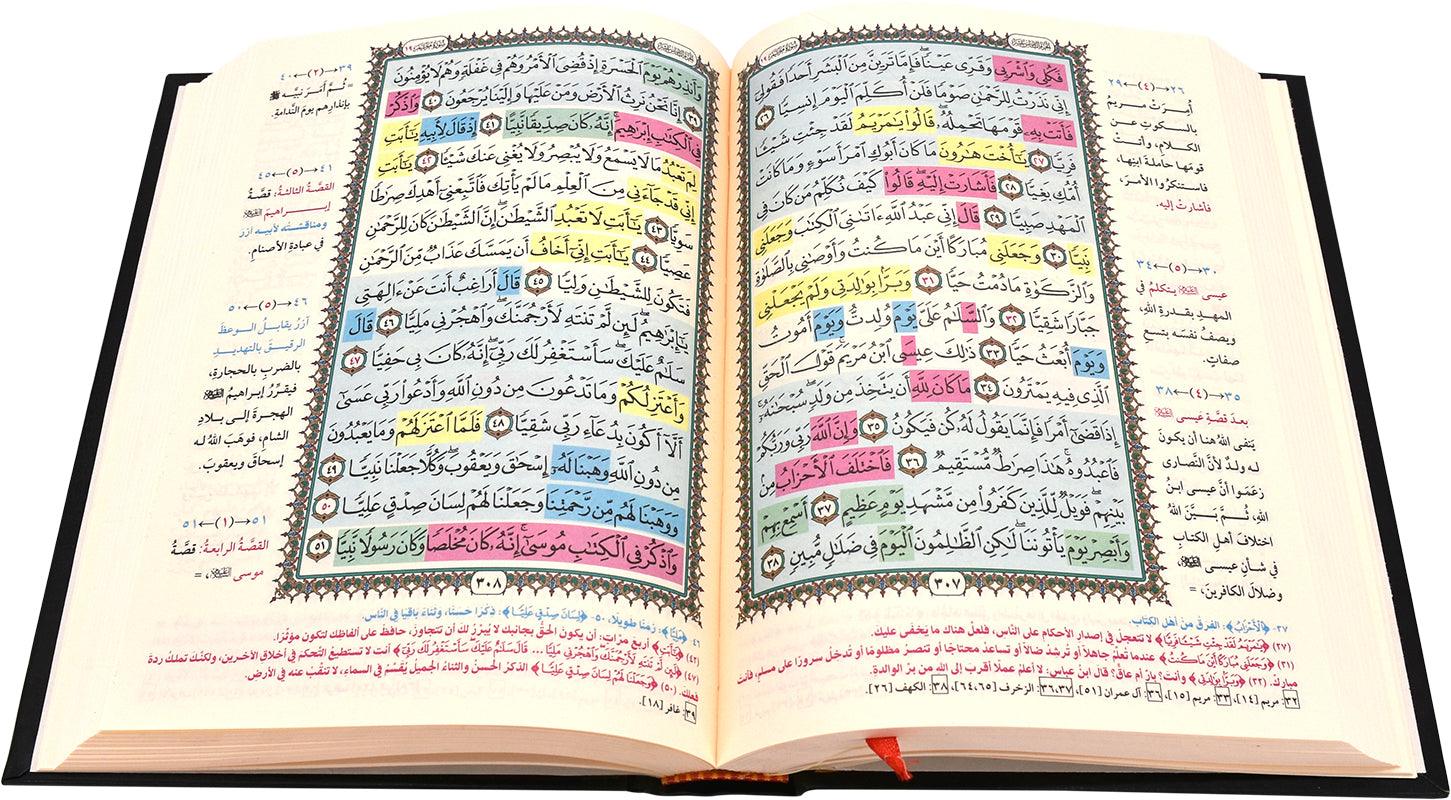 سورة مريم ١٩
فَكُلِي وَاشْرَبِي وَقَرِّي عَيْنًا فَإِمَّا تَرَيِنَّ مِنَ الْبَشَرِ أَحَدًا فَقُولِي
إِنِّي نَذَرْتُ لِلرَّحْمَٰنِ صَوْمًا فَلَنْ أُكَلِّمَ الْيَوْمَ إِنسِيًّا ٢٦
فَأَتَتْ بِهِ قَوْمَهَا تَحْمِلُهُ قَالُوا يَا مَرْيَمُ لَقَدْ جِئْتِ شَيْئًا
فَرِيًّا ٢٧ يَا أُخْتَ هَارُونَ مَا كَانَ أَبُوكِ امْرَأَ سَوْءٍ وَمَا كَانَتْ
أُمُّكِ بَغِيًّا ٢٨ فَأَشَارَتْ إِلَيْهِ قَالُوا كَيْفَ نُكَلِّمُ مَن كَانَ فِي
الْمَهْدِ صَبِيًّا ٢٩ قَالَ إِنِّي عَبْدُ اللَّهِ آتَانِيَ الْكِتَابَ وَجَعَلَنِي
نَبِيًّا ٣٠ وَجَعَلَنِي مُبَارَكًا أَيْنَ مَا كُنتُ وَأَوْصَانِي بِالصَّلَاةِ
وَالزَّكَاةِ مَا دُمْتُ حَيًّا ٣١ وَبَرًّا بِوَالِدَتِي وَلَمْ يَجْعَلْنِي
جَبَّارًا شَقِيًّا ٣٢ وَالسَّلَامُ عَلَيَّ يَوْمَ وُلِدتُّ وَيَوْمَ أَمُوتُ
وَيَوْمَ أُبْعَثُ حَيًّا ٣٣ ذَٰلِكَ عِيسَى ابْنُ مَرْيَمَ قَوْلَ الْحَقِّ
الَّذِي فِيهِ يَمْتَرُونَ ٣٤ مَا كَانَ لِلَّهِ أَن يَتَّخِذَ مِن وَلَدٍ سُبْحَانَهُ
إِذَا قَضَىٰ أَمْرًا فَإِنَّمَا يَقُولُ لَهُ كُن فَيَكُونُ ٣٥ وَإِنَّ اللَّهَ رَبِّي وَرَبُّكُمْ
فَاعْبُدُوهُ هَٰذَا صِرَاطٌ مُّسْتَقِيمٌ ٣٦ فَاخْتَلَفَ الْأَحْزَابُ مِن
بَيْنِهِمْ فَوَيْلٌ لِّلَّذِينَ كَفَرُوا مِن مَّشْهَدِ يَوْمٍ عَظِيمٍ ٣٧ أَسْمِعْ بِهِمْ
وَأَبْصِرْ يَوْمَ يَأْتُونَنَا لَٰكِنِ الظَّالِمُونَ الْيَوْمَ فِي ضَلَالٍ مُّبِينٍ ٣٨
٣٠٧
٢٦←(٤)→٢٩
أُمِرَتْ مريمُ
بالسكوتِ عن
الكلامِ، وأتتْ
قومَها حاملةً ابنَها،
فاستنكرُوا الأمرَ،
فأشارتْ إليه.
٣٠←(٥)→٣٤
عيسى يتكلمُ في
المهدِ بقدرةِ اللهِ،
ويصفُ نفسَه بتسعِ
صفاتٍ.
٣٥←(٤)→٣٨
بعدَ قصَّةِ عيسى
ينفى اللهُ هنا أن يكونَ
له ولدٌ لأنَّ النَّصارى
زعَمُوا أنَّ عيسى ابنُ
اللهِ، ثُمَّ بَيَّنَ اللهُ
اختلافَ أهلِ الكتابِ
في شأنِ عيسى،
وضلالَ الكافرينَ، =
٣٧- ﴿الْأَحْزَابُ﴾: الفرق من أهل الكتاب.
(٢٧) ﴿يَا مَرْيَمُ لَقَدْ جِئْتِ شَيْئًا فَرِيًّا﴾ لا تتعجل في إصدار الأحكام على النَّاس، فلعلَّ هناك ما يَخفى عليك.
(٣١) ﴿وَجَعَلَنِي مُبَارَكًا أَيْنَ مَا كُنتُ﴾ عندما تعلِّم جاهلًا أو تُرشد ضالًا أو تساعدُ محتاجًا أو تنصرُ مظلومًا أو تُدخلُ سرورًا على مسلم، فأنت
مباركٌ. (٣٢) ﴿وَبَرًّا بِوَالِدَتِي﴾ وأنت؟ بارٌ أم عاق؟ قال ابن عباس: لا أعلمُ عملًا أقربَ إلى الله من برِّ الوالدة.
٣٢: مريم [١٤]، ٣٣: مريم [١٥]، ٣٦: آل عمران [٥١]، ٣٦،٣٧: الزخرف [٦٤،٦٥]، ٣٨: الكهف [٢٦].
سورة مريم ١٩
وَأَنذِرْهُمْ يَوْمَ الْحَسْرَةِ إِذْ قُضِيَ الْأَمْرُ وَهُمْ فِي غَفْلَةٍ وَهُمْ لَا يُؤْمِنُونَ
٣٩ إِنَّا نَحْنُ نَرِثُ الْأَرْضَ وَمَنْ عَلَيْهَا وَإِلَيْنَا يُرْجَعُونَ ٤٠ وَاذْكُرْ
فِي الْكِتَابِ إِبْرَاهِيمَ إِنَّهُ كَانَ صِدِّيقًا نَّبِيًّا ٤١ إِذْ قَالَ لِأَبِيهِ يَا أَبَتِ
لِمَ تَعْبُدُ مَا لَا يَسْمَعُ وَلَا يُبْصِرُ وَلَا يُغْنِي عَنكَ شَيْئًا ٤٢ يَا أَبَتِ
إِنِّي قَدْ جَاءَنِي مِنَ الْعِلْمِ مَا لَمْ يَأْتِكَ فَاتَّبِعْنِي أَهْدِكَ صِرَاطًا
سَوِيًّا ٤٣ يَا أَبَتِ لَا تَعْبُدِ الشَّيْطَانَ إِنَّ الشَّيْطَانَ كَانَ لِلرَّحْمَٰنِ
عَصِيًّا ٤٤ يَا أَبَتِ إِنِّي أَخَافُ أَن يَمَسَّكَ عَذَابٌ مِّنَ الرَّحْمَٰنِ
فَتَكُونَ لِلشَّيْطَانِ وَلِيًّا ٤٥ قَالَ أَرَاغِبٌ أَنتَ عَنْ آلِهَتِي
يَا إِبْرَاهِيمُ لَئِن لَّمْ تَنتَهِ لَأَرْجُمَنَّكَ وَاهْجُرْنِي مَلِيًّا ٤٦ قَالَ
سَلَامٌ عَلَيْكَ سَأَسْتَغْفِرُ لَكَ رَبِّي إِنَّهُ كَانَ بِي حَفِيًّا ٤٧
وَأَعْتَزِلُكُمْ وَمَا تَدْعُونَ مِن دُونِ اللَّهِ وَأَدْعُو رَبِّي عَسَىٰ
أَلَّا أَكُونَ بِدُعَاءِ رَبِّي شَقِيًّا ٤٨ فَلَمَّا اعْتَزَلَهُمْ وَمَا يَعْبُدُونَ
مِن دُونِ اللَّهِ وَهَبْنَا لَهُ إِسْحَاقَ وَيَعْقُوبَ وَكُلًّا جَعَلْنَا نَبِيًّا ٤٩
وَوَهَبْنَا لَهُم مِّن رَّحْمَتِنَا وَجَعَلْنَا لَهُمْ لِسَانَ صِدْقٍ عَلِيًّا ٥٠
وَاذْكُرْ فِي الْكِتَابِ مُوسَىٰ إِنَّهُ كَانَ مُخْلَصًا وَكَانَ رَسُولًا نَّبِيًّا ٥١
٣٠٨
٣٩←(٢)→٤٠
= ثُمَّ أَمَرَ نبيَّه ﷺ
بإنذارِهم يومَ النَّدامةِ.
٤١←(٥)→٤٥
القصَّةُ الثالثةُ: قصَّةُ
إبراهيمَ
ومناقشتُه لأبيه آزرَ
في عبادةِ الأصنامِ.
٤٦←(٥)→٥٠
آزرُ يقابلُ الوعظَ
الرقيقَ بالتهديدِ
بالضربِ بالحجارةِ،
فيقرِّرُ إبراهيمُ
الهجرةَ إلى بلادِ
الشامِ، فوهَبَ اللهُ له
إسحاقَ ويعقوبَ.
٥١←(١)→٥١
القصَّةُ الرابعةُ: قصَّةُ
موسى، =
٤٦- ﴿مَلِيًّا﴾: زمنًا طويلًا، ٥٠- ﴿لِسَانَ صِدْقٍ عَلِيًّا﴾: ذكرًا حسنًا، وثناءً باقيًا في النَّاس.
(٤٢) ﴿يَا أَبَتِ﴾ أربع مرات: أن يكون الحقُّ بجانبك لا يُبررُ لك أن تتجاوز، حافظْ على ألفاظك لتكون مؤثِّرًا.
(٤٧) ﴿لَئِن لَّمْ تَنتَهِ لَأَرْجُمَنَّكَ وَاهْجُرْنِي مَلِيًّا ... قَالَ سَلَامٌ عَلَيْكَ سَأَسْتَغْفِرُ لَكَ رَبِّي﴾ أنت لا تستطيعُ التَّحكم في أخلاق الآخرين، ولكنَّك تملكُ ردة
فعلك. (٥٠) ﴿وَجَعَلْنَا لَهُمْ لِسَانَ صِدْقٍ عَلِيًّا﴾ الذكرُ الحسنُ والثناءُ الجميلُ يُقسَمُ في السماء، لا تنقبْ عنه في الأرض.
٣٩: غافر [١٨].